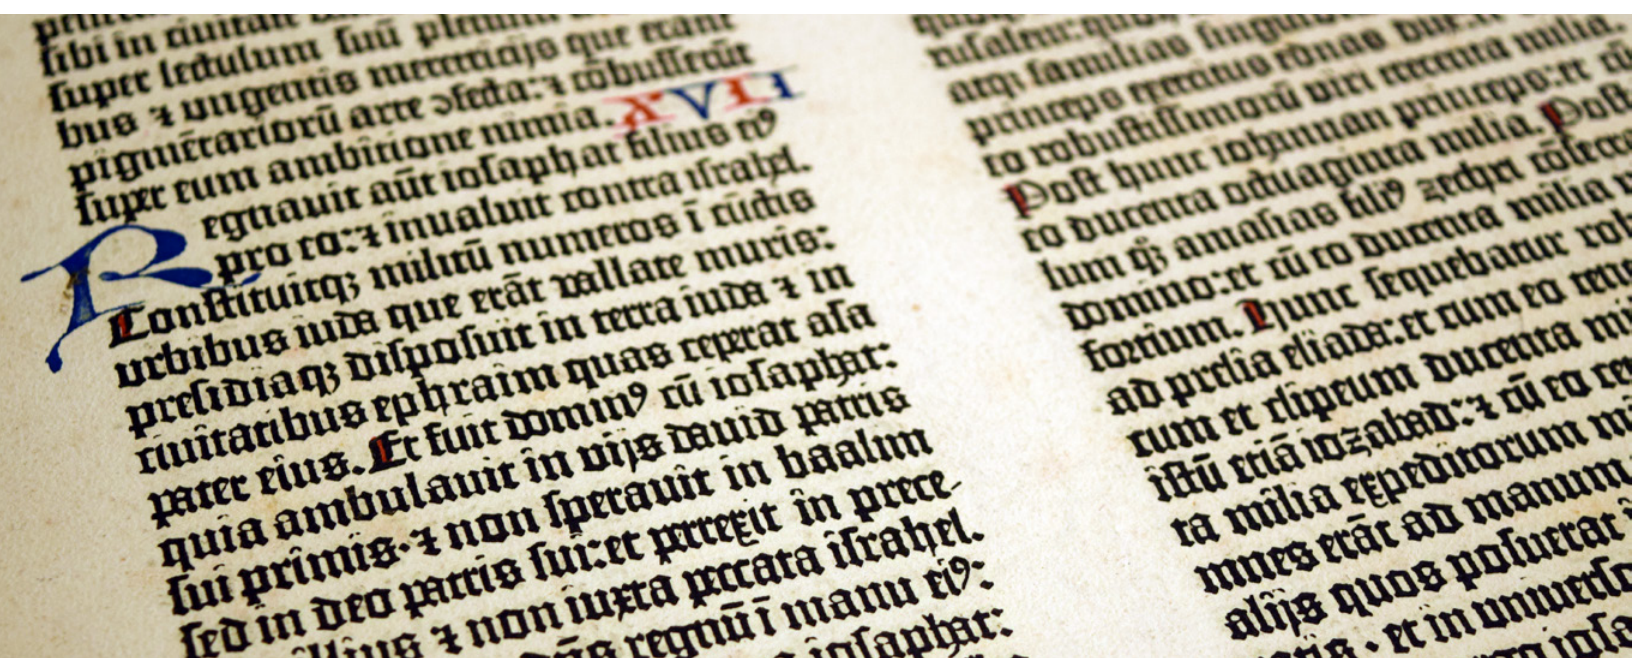 sibi in ciuitate
super lectulum suū plenum
bus ⁊ ungentis meretricijs que erant
pigmētariorū arte ↄfecta: ⁊ cōbusserūt
super eum ambitione nimia. XVII
Regnauit aūt iosaphat filius eiꝰ
pro eo: ⁊ inualuit contra israhel.
Constituitqꝫ militū numeros ī cūctis
urbibus iuda que erāt vallate muris:
presidiaqꝫ disposuit in terra iuda ⁊ in
ciuitatibus ephraim quas ceperat asa
pater eius. Et fuit dominꝰ cū iosaphat:
quia ambulauit in vijs dauid patris
sui primis· ⁊ non sperauit in baalim
sed in deo patris sui: et perrexit in prece-
illius ⁊ non iuxta peccata israhel.
dn̄s regnū ī manu eiꝰ:
iosaphat:
familias
princeps exercitus ednas dux: et
to robustissimorū viri trecenta milia.
Post hunc iohannan princeps: et cū
eo ducenta octuaginta milia. Post
hunc qꝫ amasias filiꝰ zechri cōsecra
domino: et cū eo ducenta milia v
fortium. Hunc sequebatur rob
ad prelia eliada: et cum eo tene
cum et clipeum ducenta mi
istū etiā iozabad: ⁊ cū eo ce
ta milia expeditorum mi
mnes erāt ad manum
alijs quos posuerat
et in uniuerso